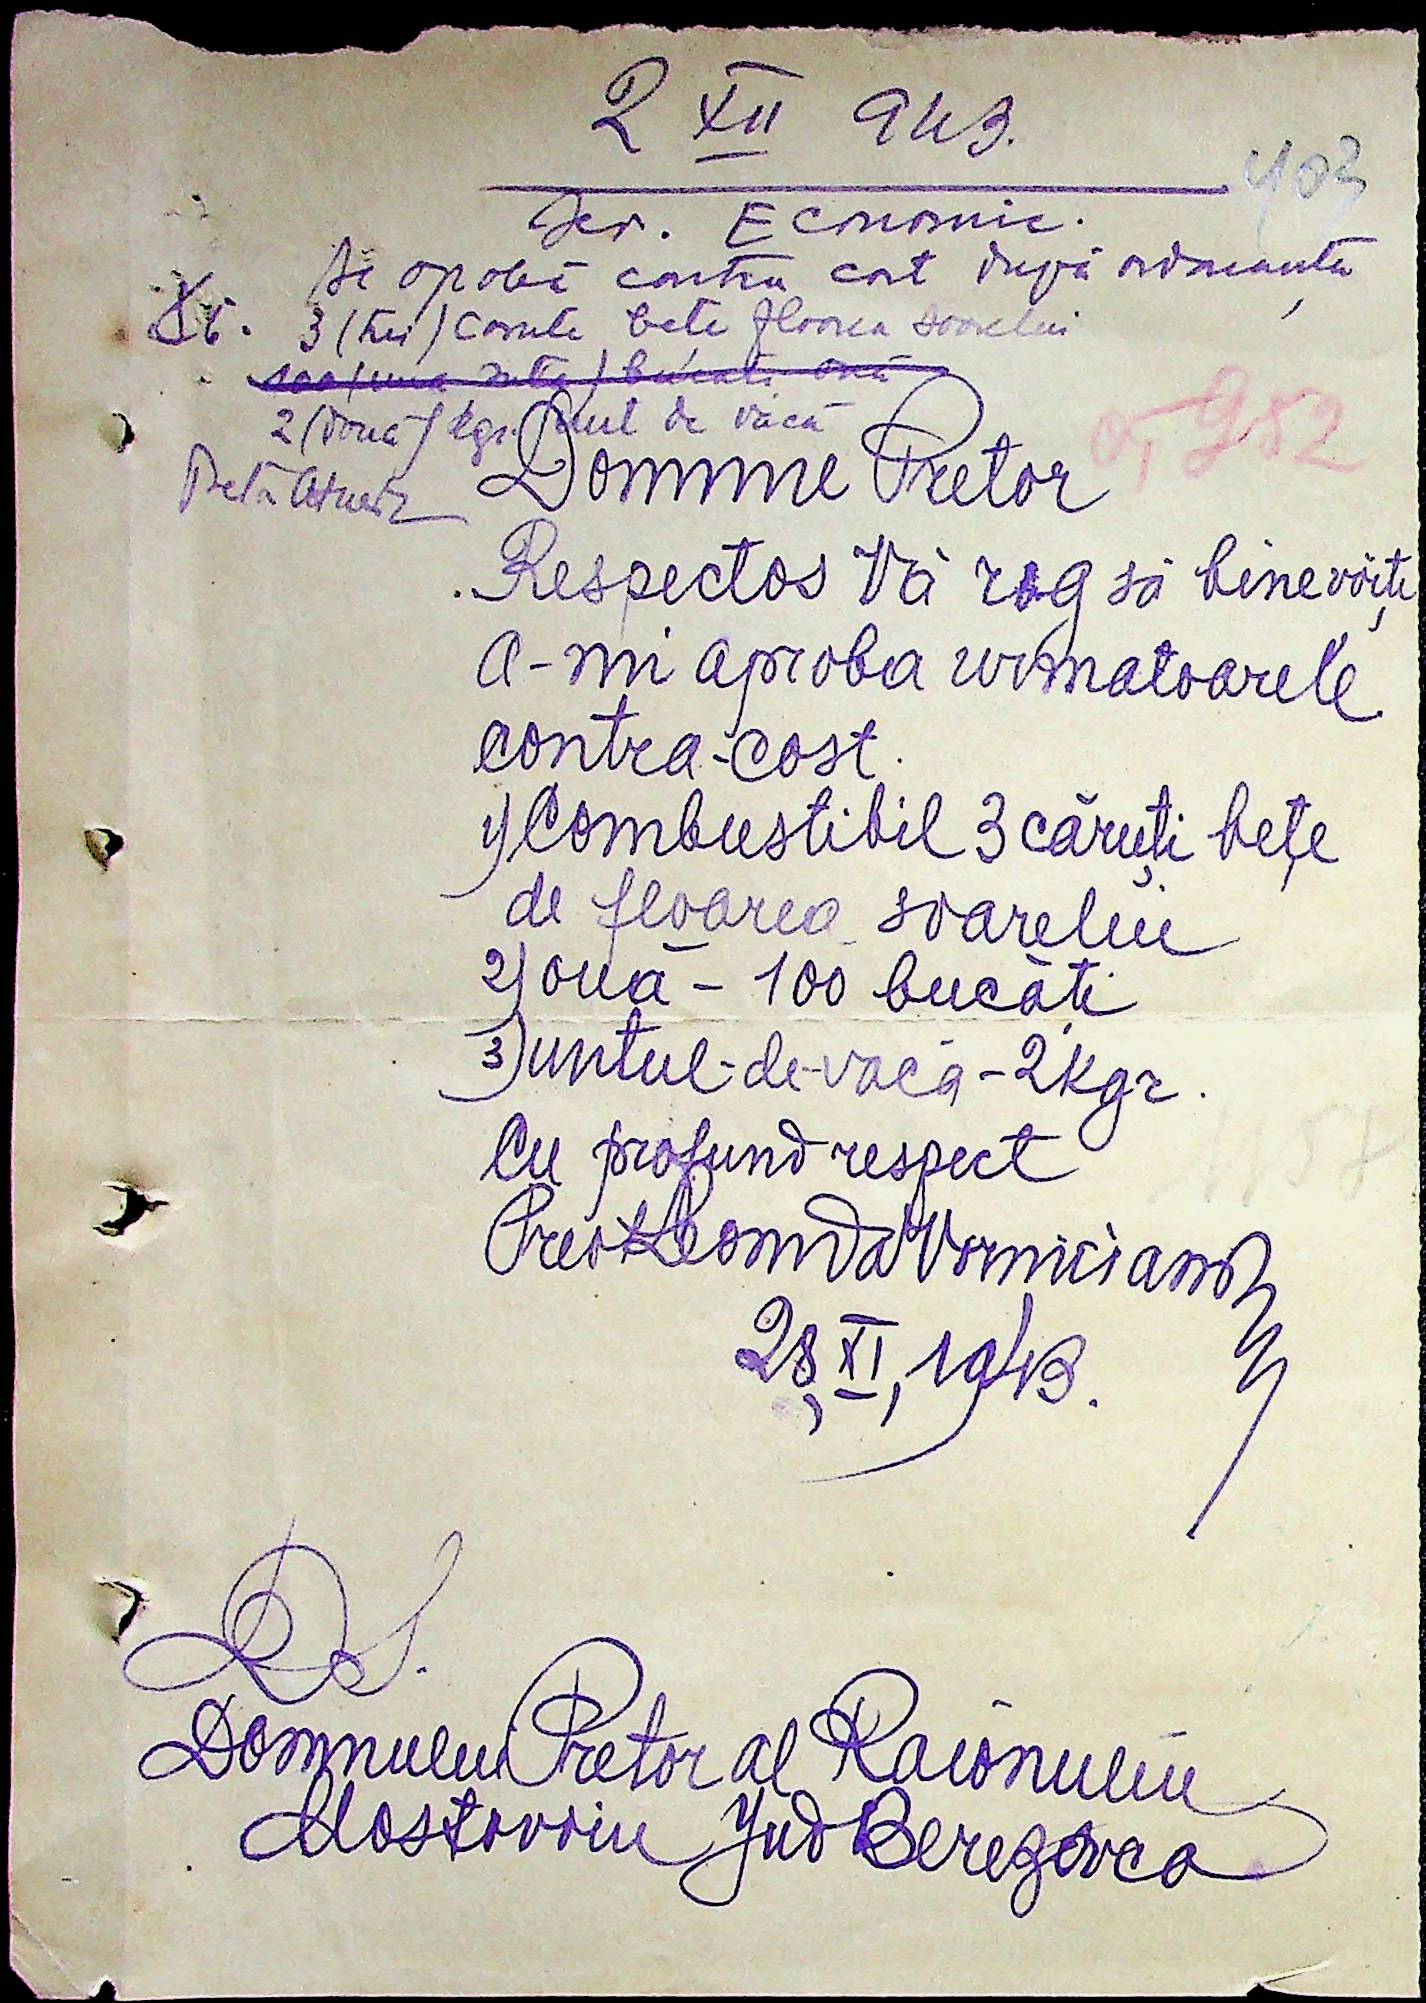 2 XII 943.
403
Ser. Economic.
Se aprobă contra cost după ordonanță
3 (trei) carute bete floarea soarelui
100 (una sută) bucati ouă
2 (două) kgr. unt de vacă
952
Pretor
Domnule Pretor
Respectos Vă rog să binevoiți
a-mi aproba urmatoarele
contra-cost.
1) Combustibil 3 căruți bețe
de floarea soarelui
2) ouă - 100 bucăți
3) untul-de-vacă - 2 kgr.
Cu profund respect
Preot Leonida Vorniceanu
28, XI, 1943.
D S.
Domnului Pretor al Raionului
Mostovoiu Jud Berezovca